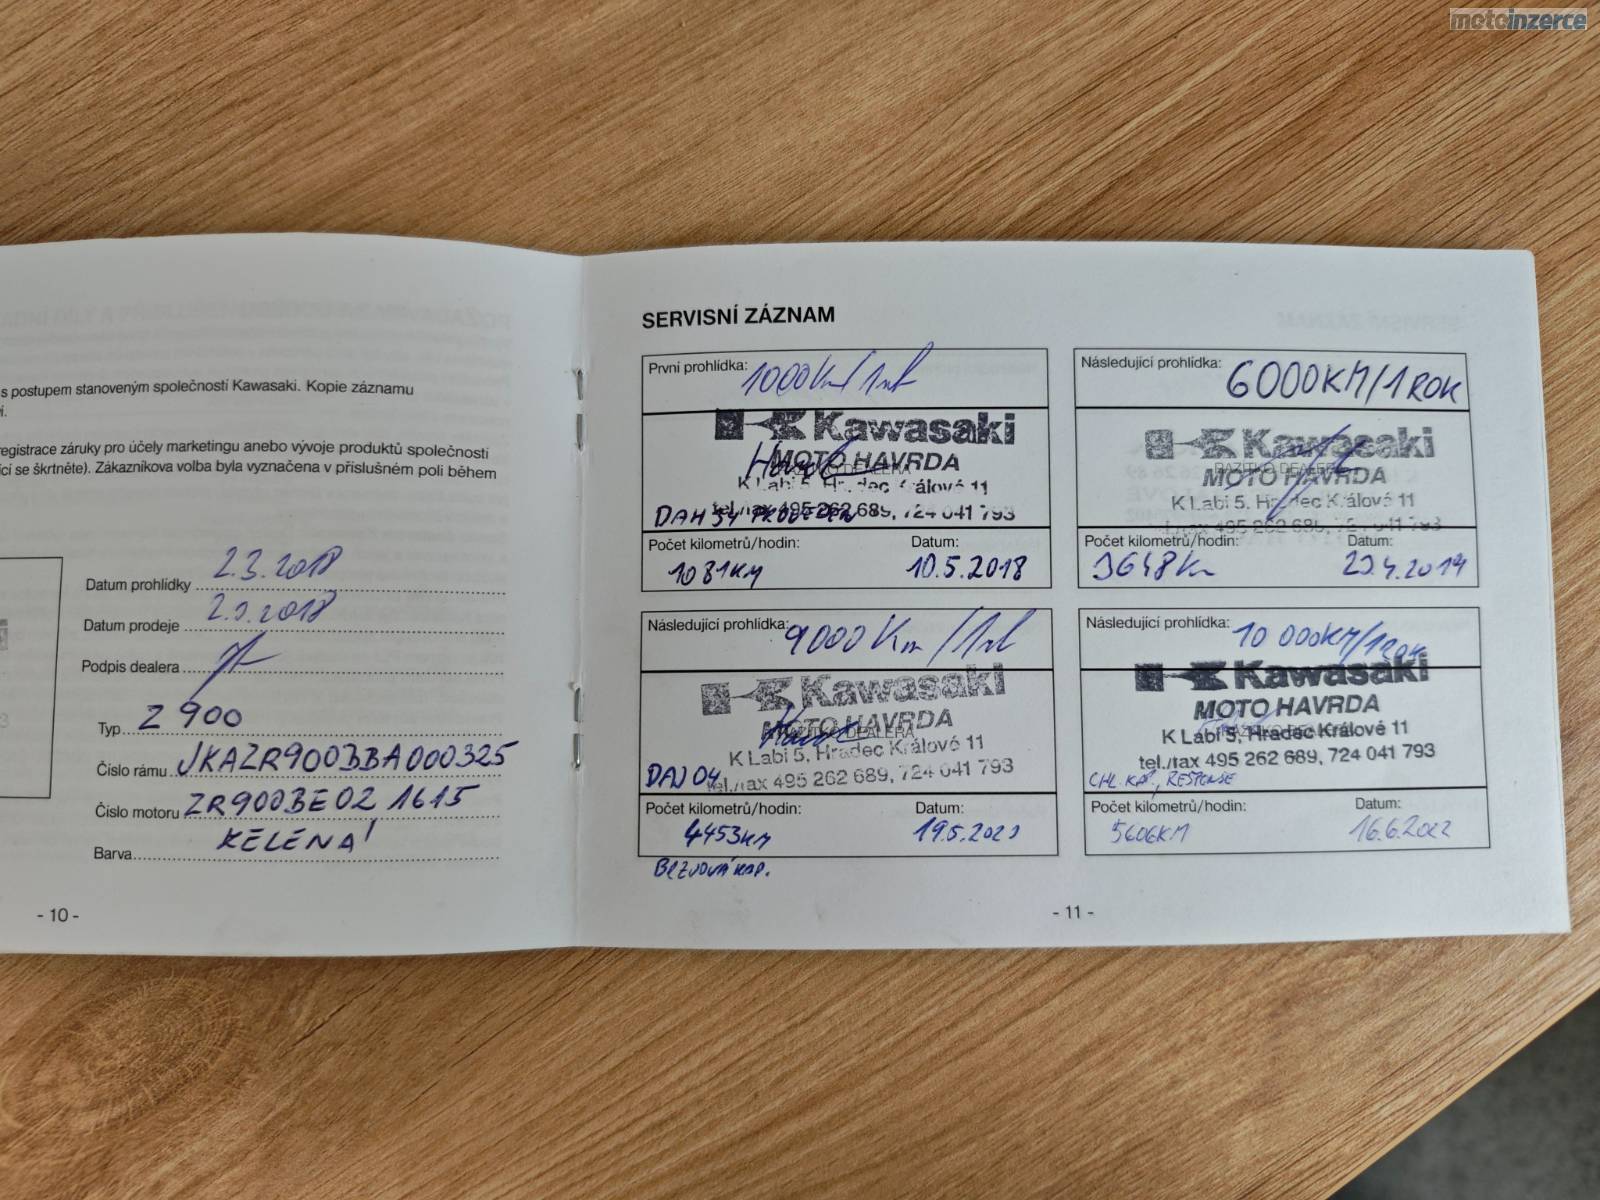 motoinzerce
s postupem stanoveným společností Kawasaki. Kopie záznamu
registrace záruky pro účely marketingu anebo vývoje produktů společnosti
ící se škrtněte). Zákazníkova volba byla vyznačena v příslušném poli během
Datum prohlídky 2.3.2018
Datum prodeje 2.3.2018
Podpis dealera
Typ Z 900
Číslo rámu JKAZR900BBA000325
Číslo motoru ZR900BE021615
Barva
- 10 -
SERVISNÍ ZÁZNAM
První prohlídka: 1000Km/1
Kawasaki
MOTO HAVRDA
RAZÍTKO DEALERA
K Labi 5, Hradec Králové 11
tel./fax 495 262 689, 724 041 793
Počet kilometrů/hodin: 1081KM
Datum: 10.5.2018
Následující prohlídka: 6000KM/1ROK
Kawasaki
RAZÍTKO DEALERA
MOTO HAVRDA
K Labi 5, Hradec Králové 11
tel./fax 495 262 689, 724 041 793
Počet kilometrů/hodin: 3648Km
Datum:
Následující prohlídka: 9000Km/1
Kawasaki
MOTO HAVRDA
RAZÍTKO DEALERA
K Labi 5, Hradec Králové 11
tel./fax 495 262 689, 724 041 793
Počet kilometrů/hodin: 4453KM
Datum:
Následující prohlídka: 10 000KM/1ROK
Kawasaki
MOTO HAVRDA
RAZÍTKO DEALERA
K Labi 5, Hradec Králové 11
tel./fax 495 262 689, 724 041 793
CHL. KAP.,
Počet kilometrů/hodin: 5606KM
Datum: 16.6.2022
- 11 -